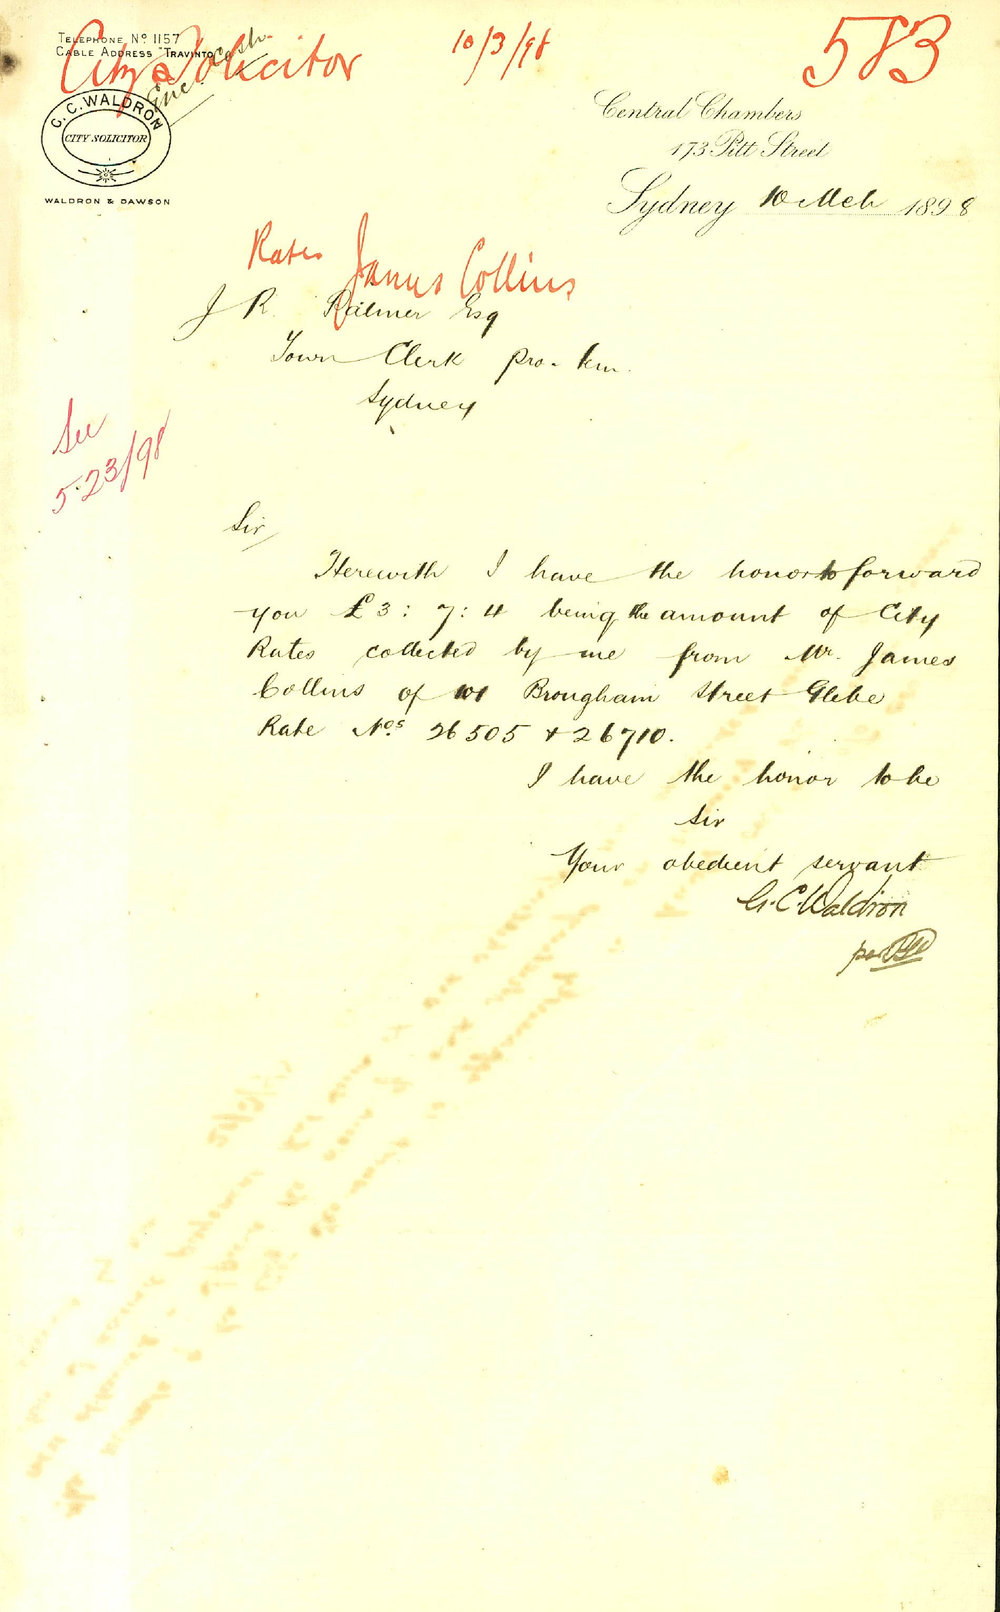 TELEPHONE No. 1157
CABLE ADDRESS "TRAVINTO"
City Solicitor
10/3/98
583
Enc. Cash.
G. C. WALDRON
CITY SOLICITOR
WALDRON & DAWSON
Central Chambers
173 Pitt Street
Sydney 10 Mch 1898
Rates James Collins
J R. Palmer Esq
Town Clerk pro. tem.
Sydney
See
523/98
Sir
Herewith I have the honor to forward
you £3:7:4 being the amount of City
Rates collected by me from Mr. James
Collins of 101 Brougham Street Glebe
Rate Nos 26505 & 26710.
I have the honor to be
Sir
Your obedient servant
G. C. Waldron
per